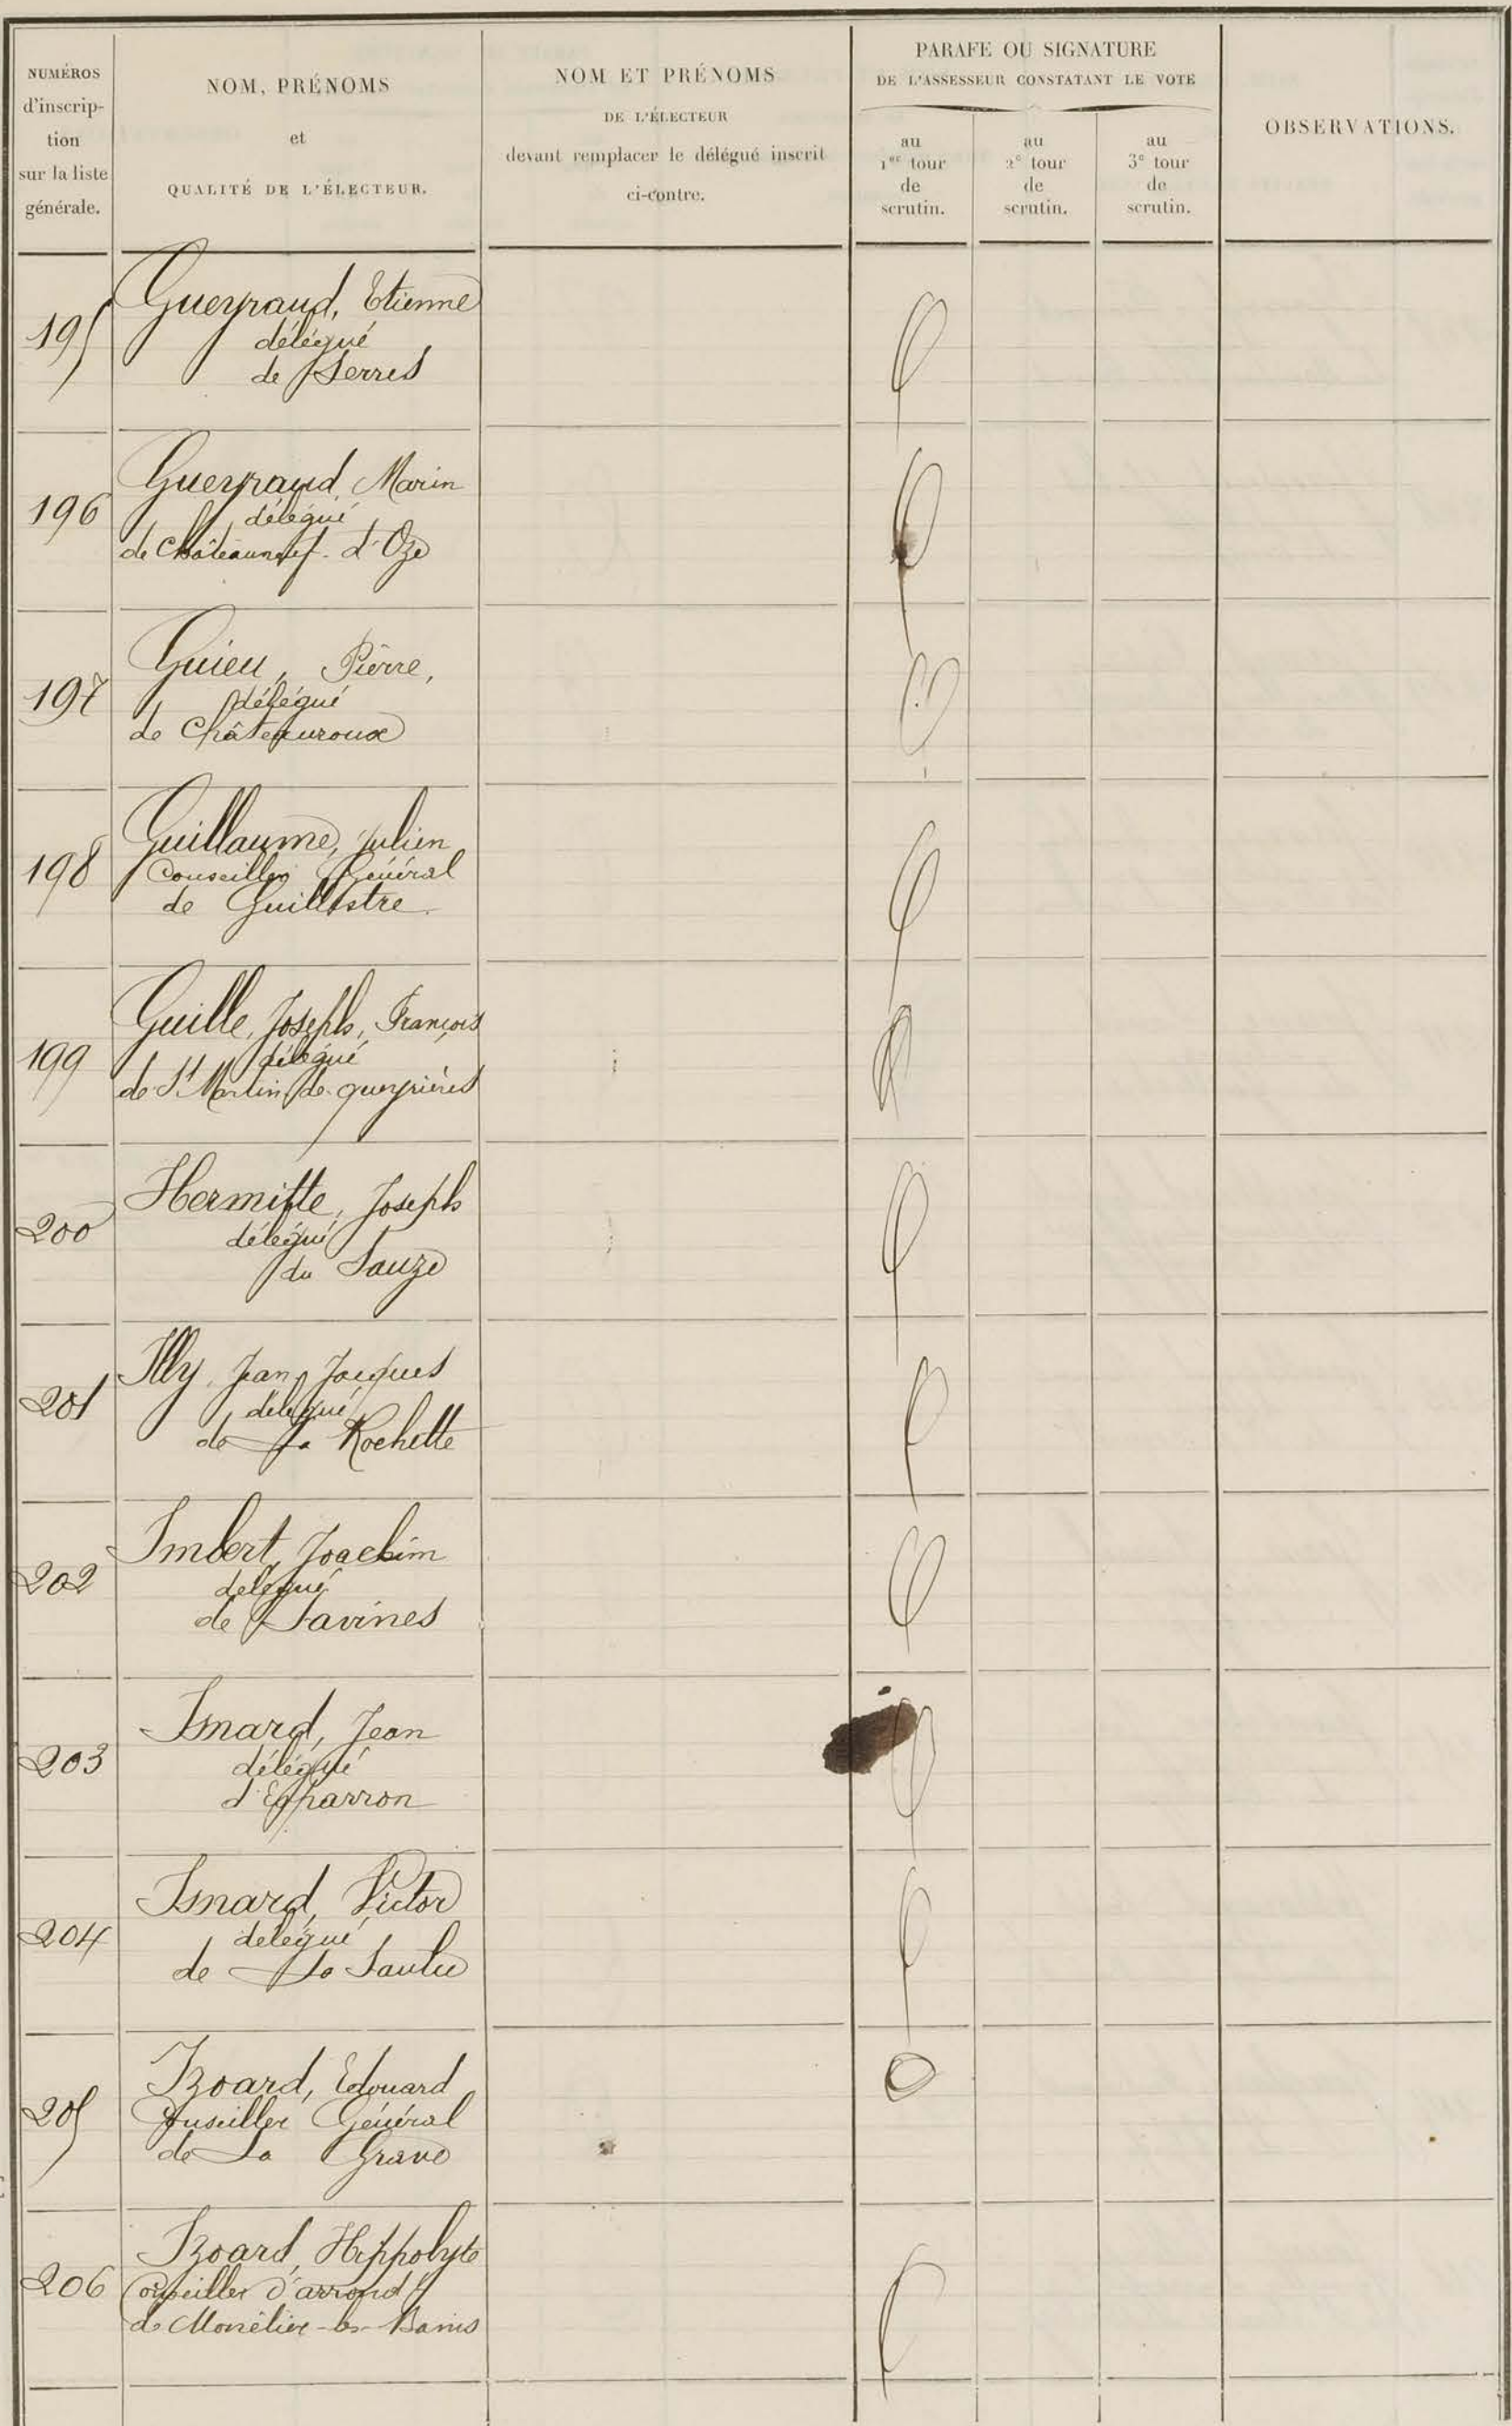 NUMÉROS
d'inscrip-
tion
sur la liste
générale.
NOM, PRÉNOMS
et
QUALITÉ DE L'ÉLECTEUR.
NOM ET PRÉNOMS
DE L'ÉLECTEUR
devant remplacer le délégué inscrit
ci-contre.
PARAFE OU SIGNATURE
DE L'ASSESSEUR CONSTATANT LE VOTE
au
1er tour
de
scrutin.
au
2e tour
de
scrutin.
au
3e tour
de
scrutin.
OBSERVATIONS.
195
Gueyraud, Etienne
délégué
de Serres
196
Gueyraud, Marin
délégué
de Châteauneuf-d'Oze
197
Guieu, Pierre,
délégué
de Châteauroux
198
Guillaume, Julien
Conseiller Général
de Guillestre
199
Guille, Joseph, François
délégué
de St Martin de queyrières
200
Hermitte, Joseph
délégué
du Sauze
201
Illy, Jean, Jacques
délégué
de La Rochette
202
Imbert, Joachim
délégué
de Savines
203
Isnard, Jean
délégué
d'Esparron
204
Isnard, Victor
délégué
de La Saulce
205
Izoard, Edouard
Conseiller Général
de La Grave
206
Izoard, Hippolyte
Conseiller d'arrondt
de Monêtier-les-Bains